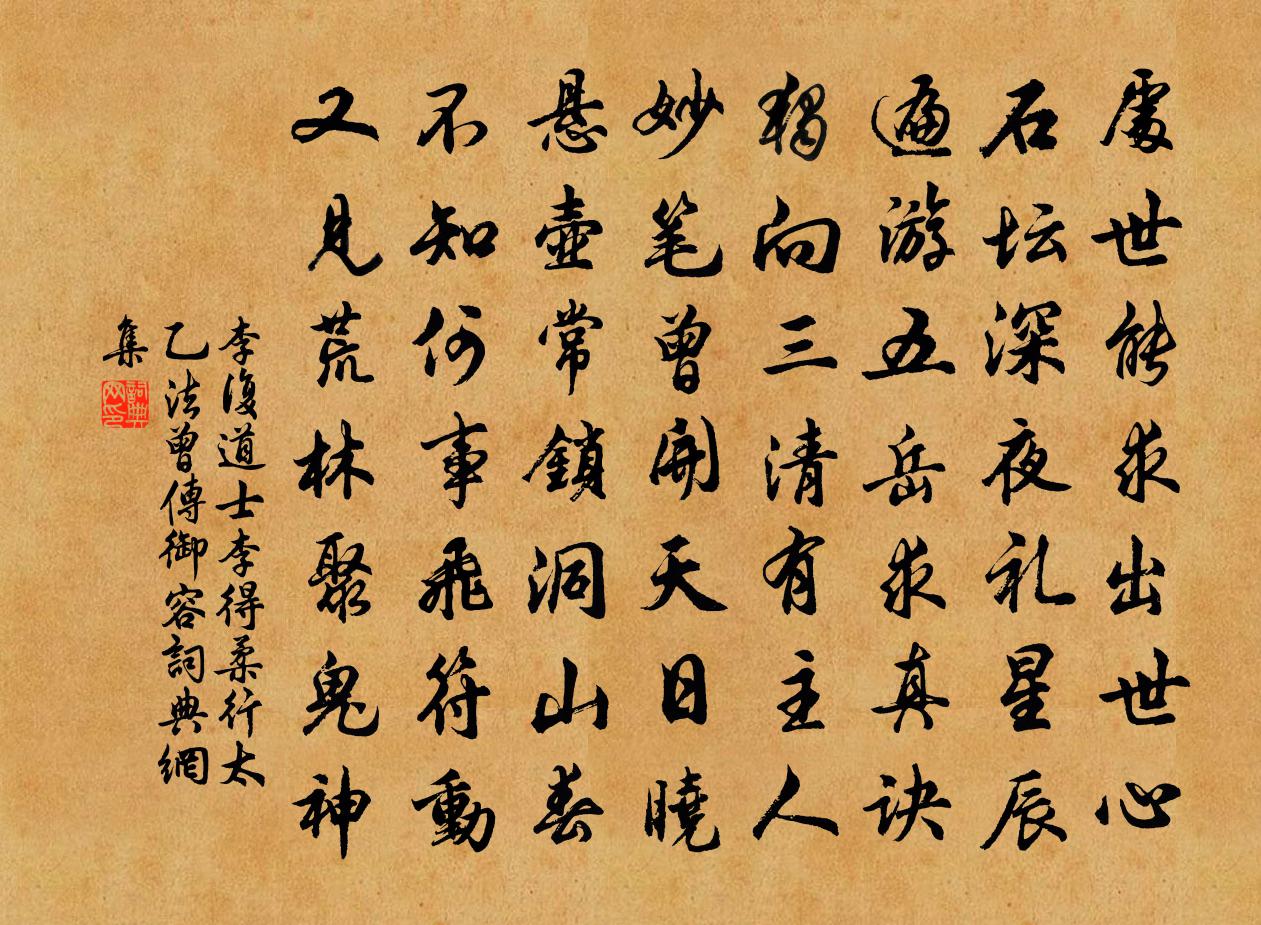 處世能求出世心
石坛深夜礼星辰
遍游五岳求真诀
獨向三清有主人
妙笔曾開天日曉
悬壺常鎖洞山春
不知何事飛符動
又見荒林聚鬼神
李復道士李得柔行太
乙法曾傳御容詞典網
集
詞典网印